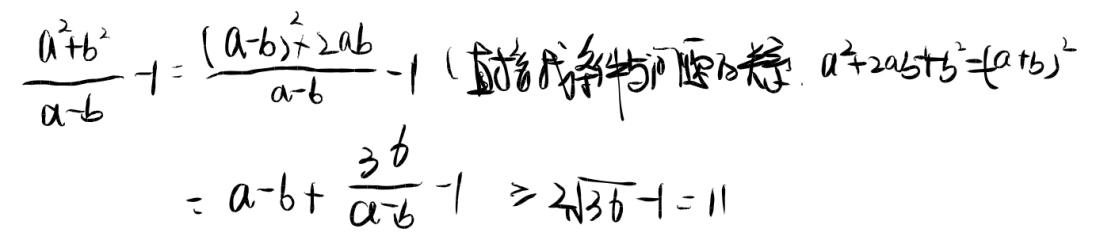 (a²+b²)/(a-b) -1 = ((a-b)²+2ab)/(a-b) -1 (直接找条件与问题的关系. a²+2ab+b²=(a+b)²
= a-b + 36/(a-b) -1 ≥ 2√36 -1 = 11